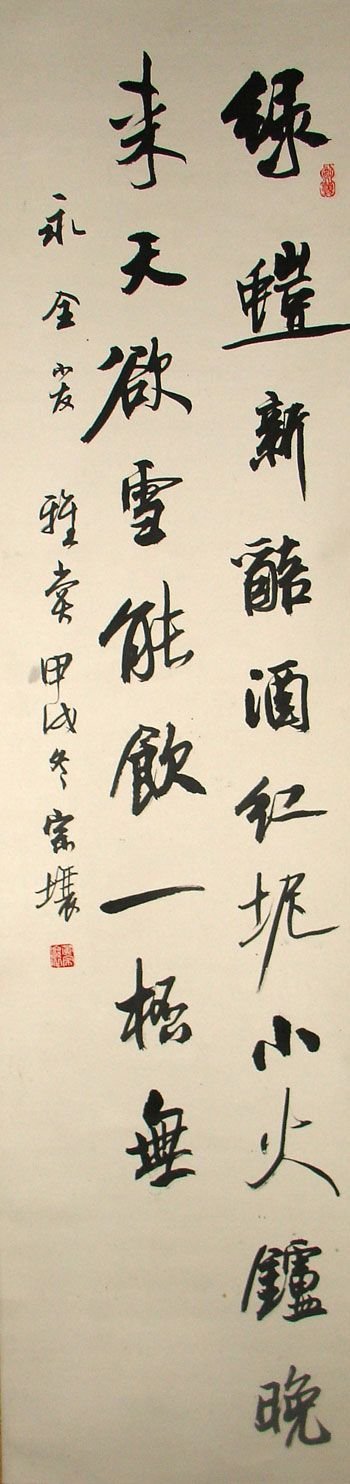 綠螘新醅酒紅坭小火鑪晚
来天欲雪能飲一桮無
永全小友雅賞甲戌冬宗壤